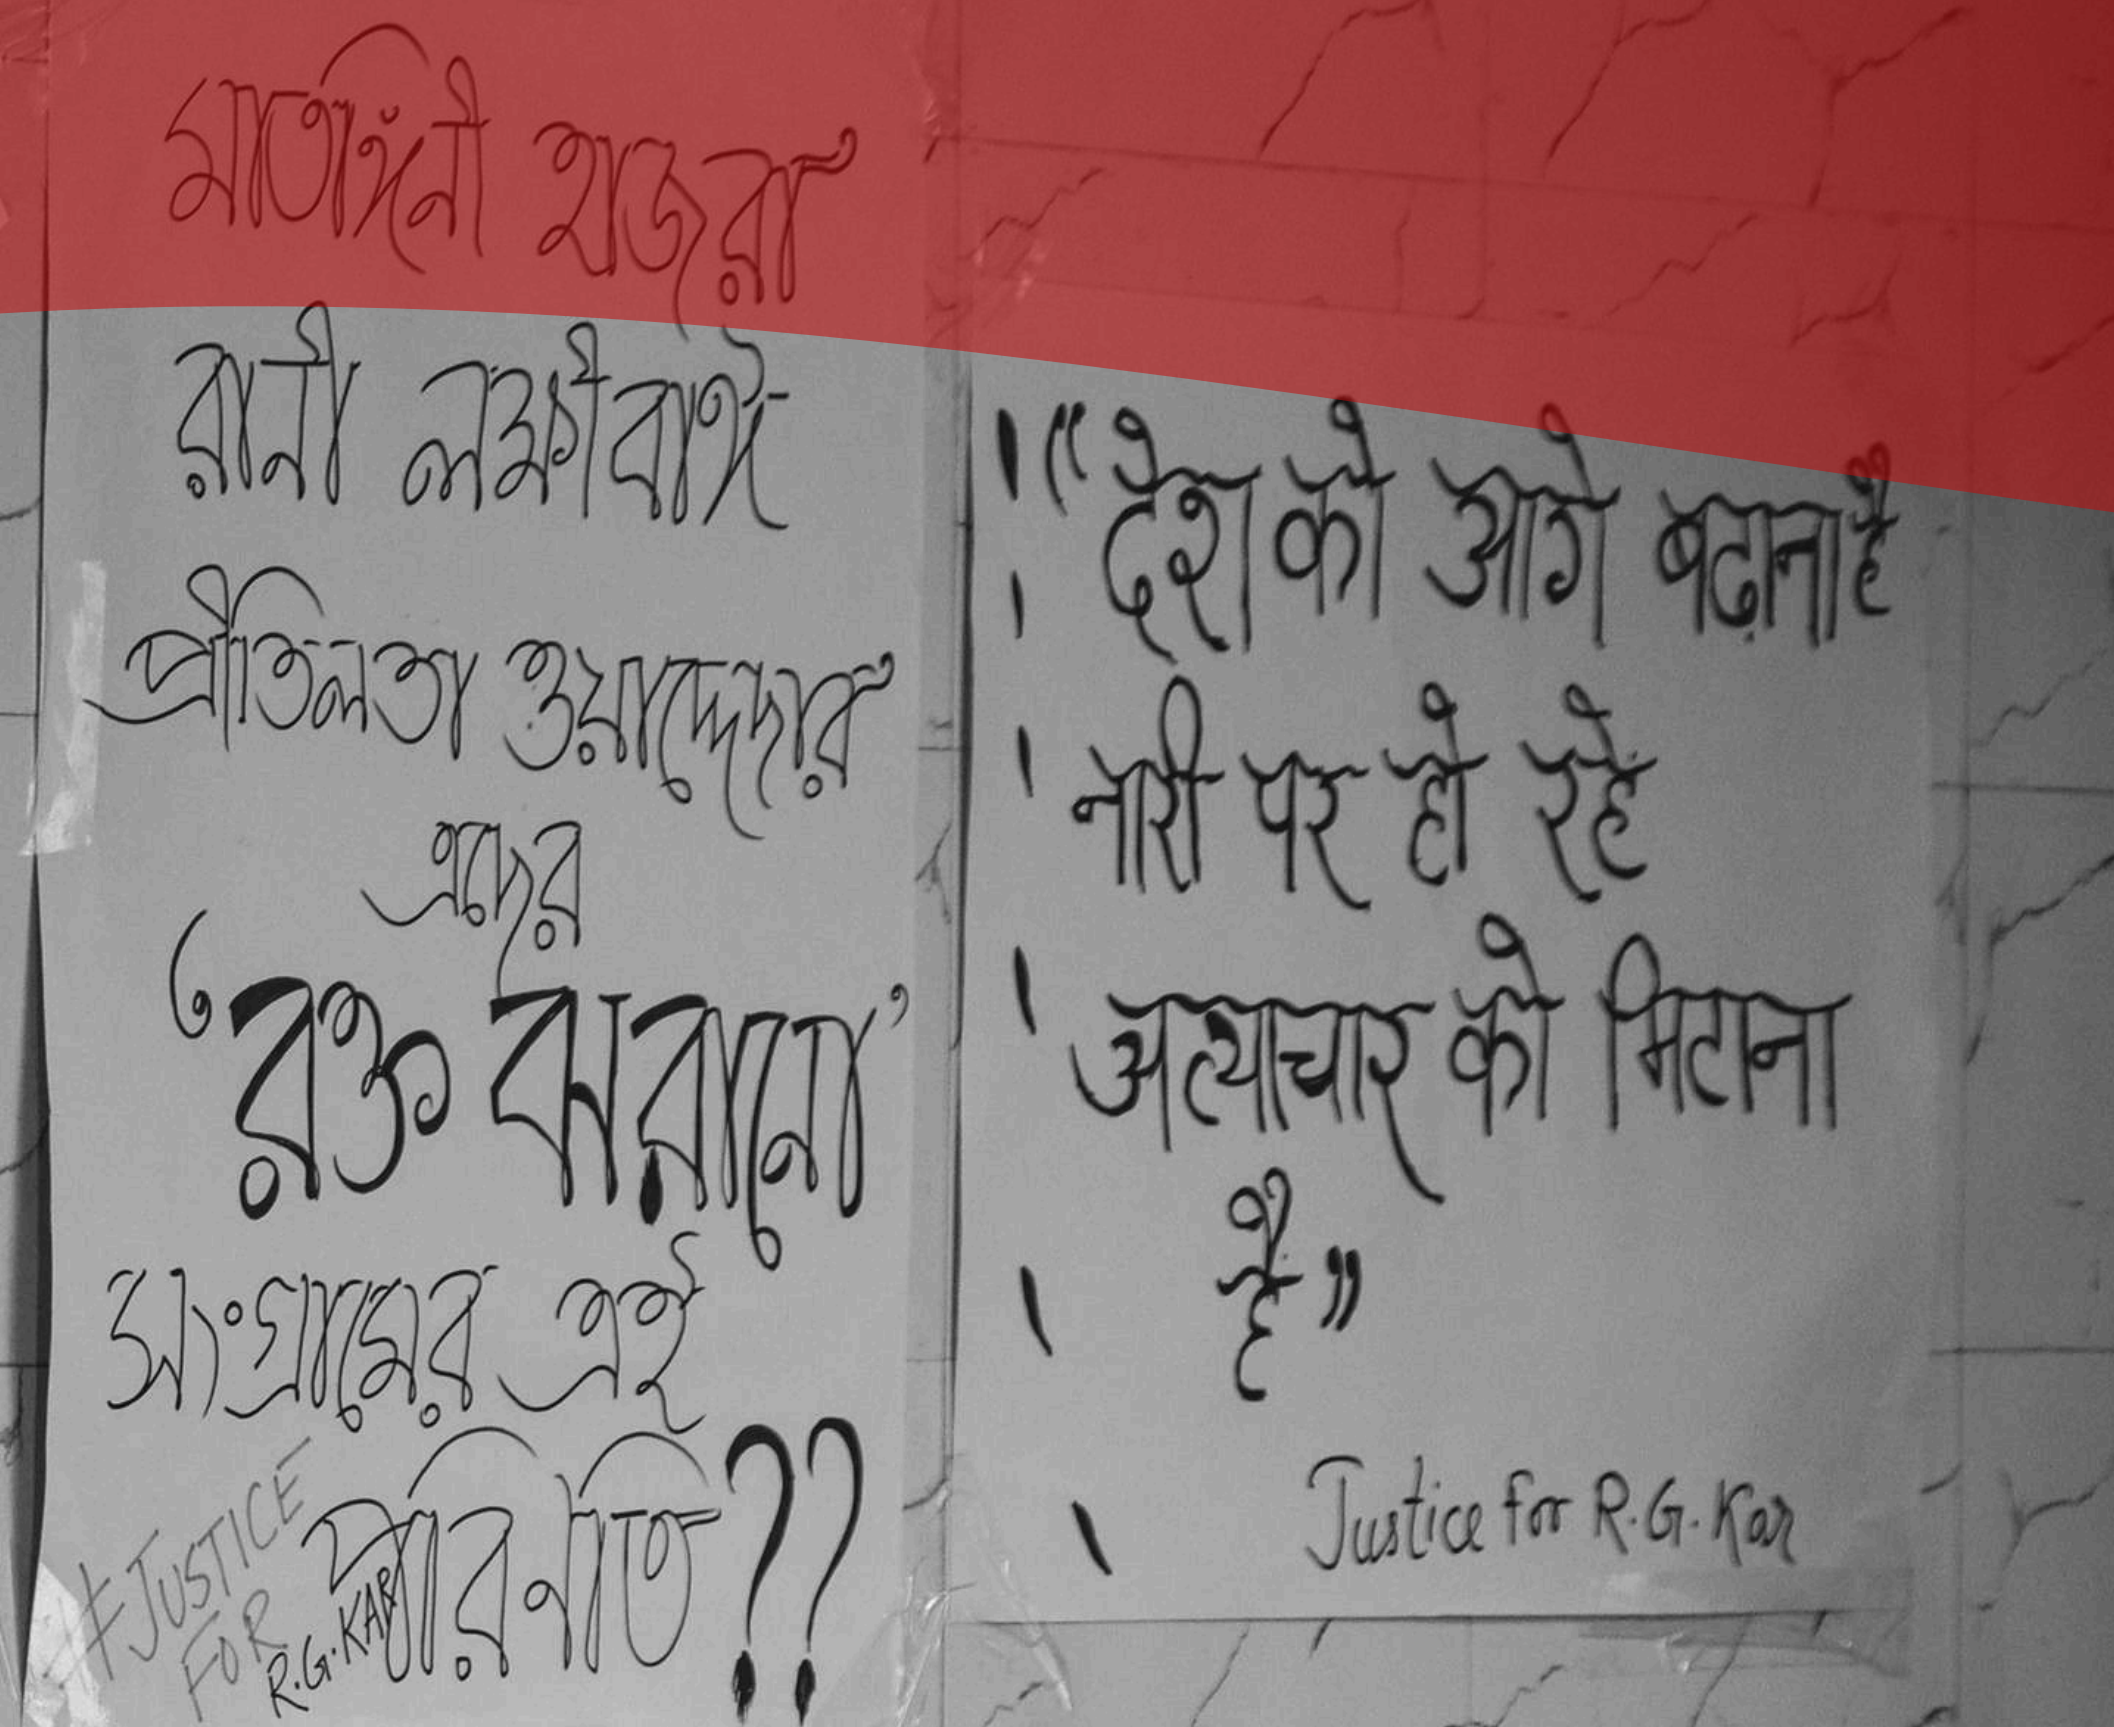 মাতঙ্গিনী হাজরা
রানী লক্ষ্মীবাঈ
প্রীতিলতা ওয়াদ্দেদার
এদের
‘রক্ত ঝরানো’
সংগ্রামের এই
পরিনতি??
#JUSTICE
FOR
R.G.KAR
“देश को आगे बढ़ाना है
नारी पर हो रहें
अत्याचार को मिटाना
है”
Justice for R.G. Kar